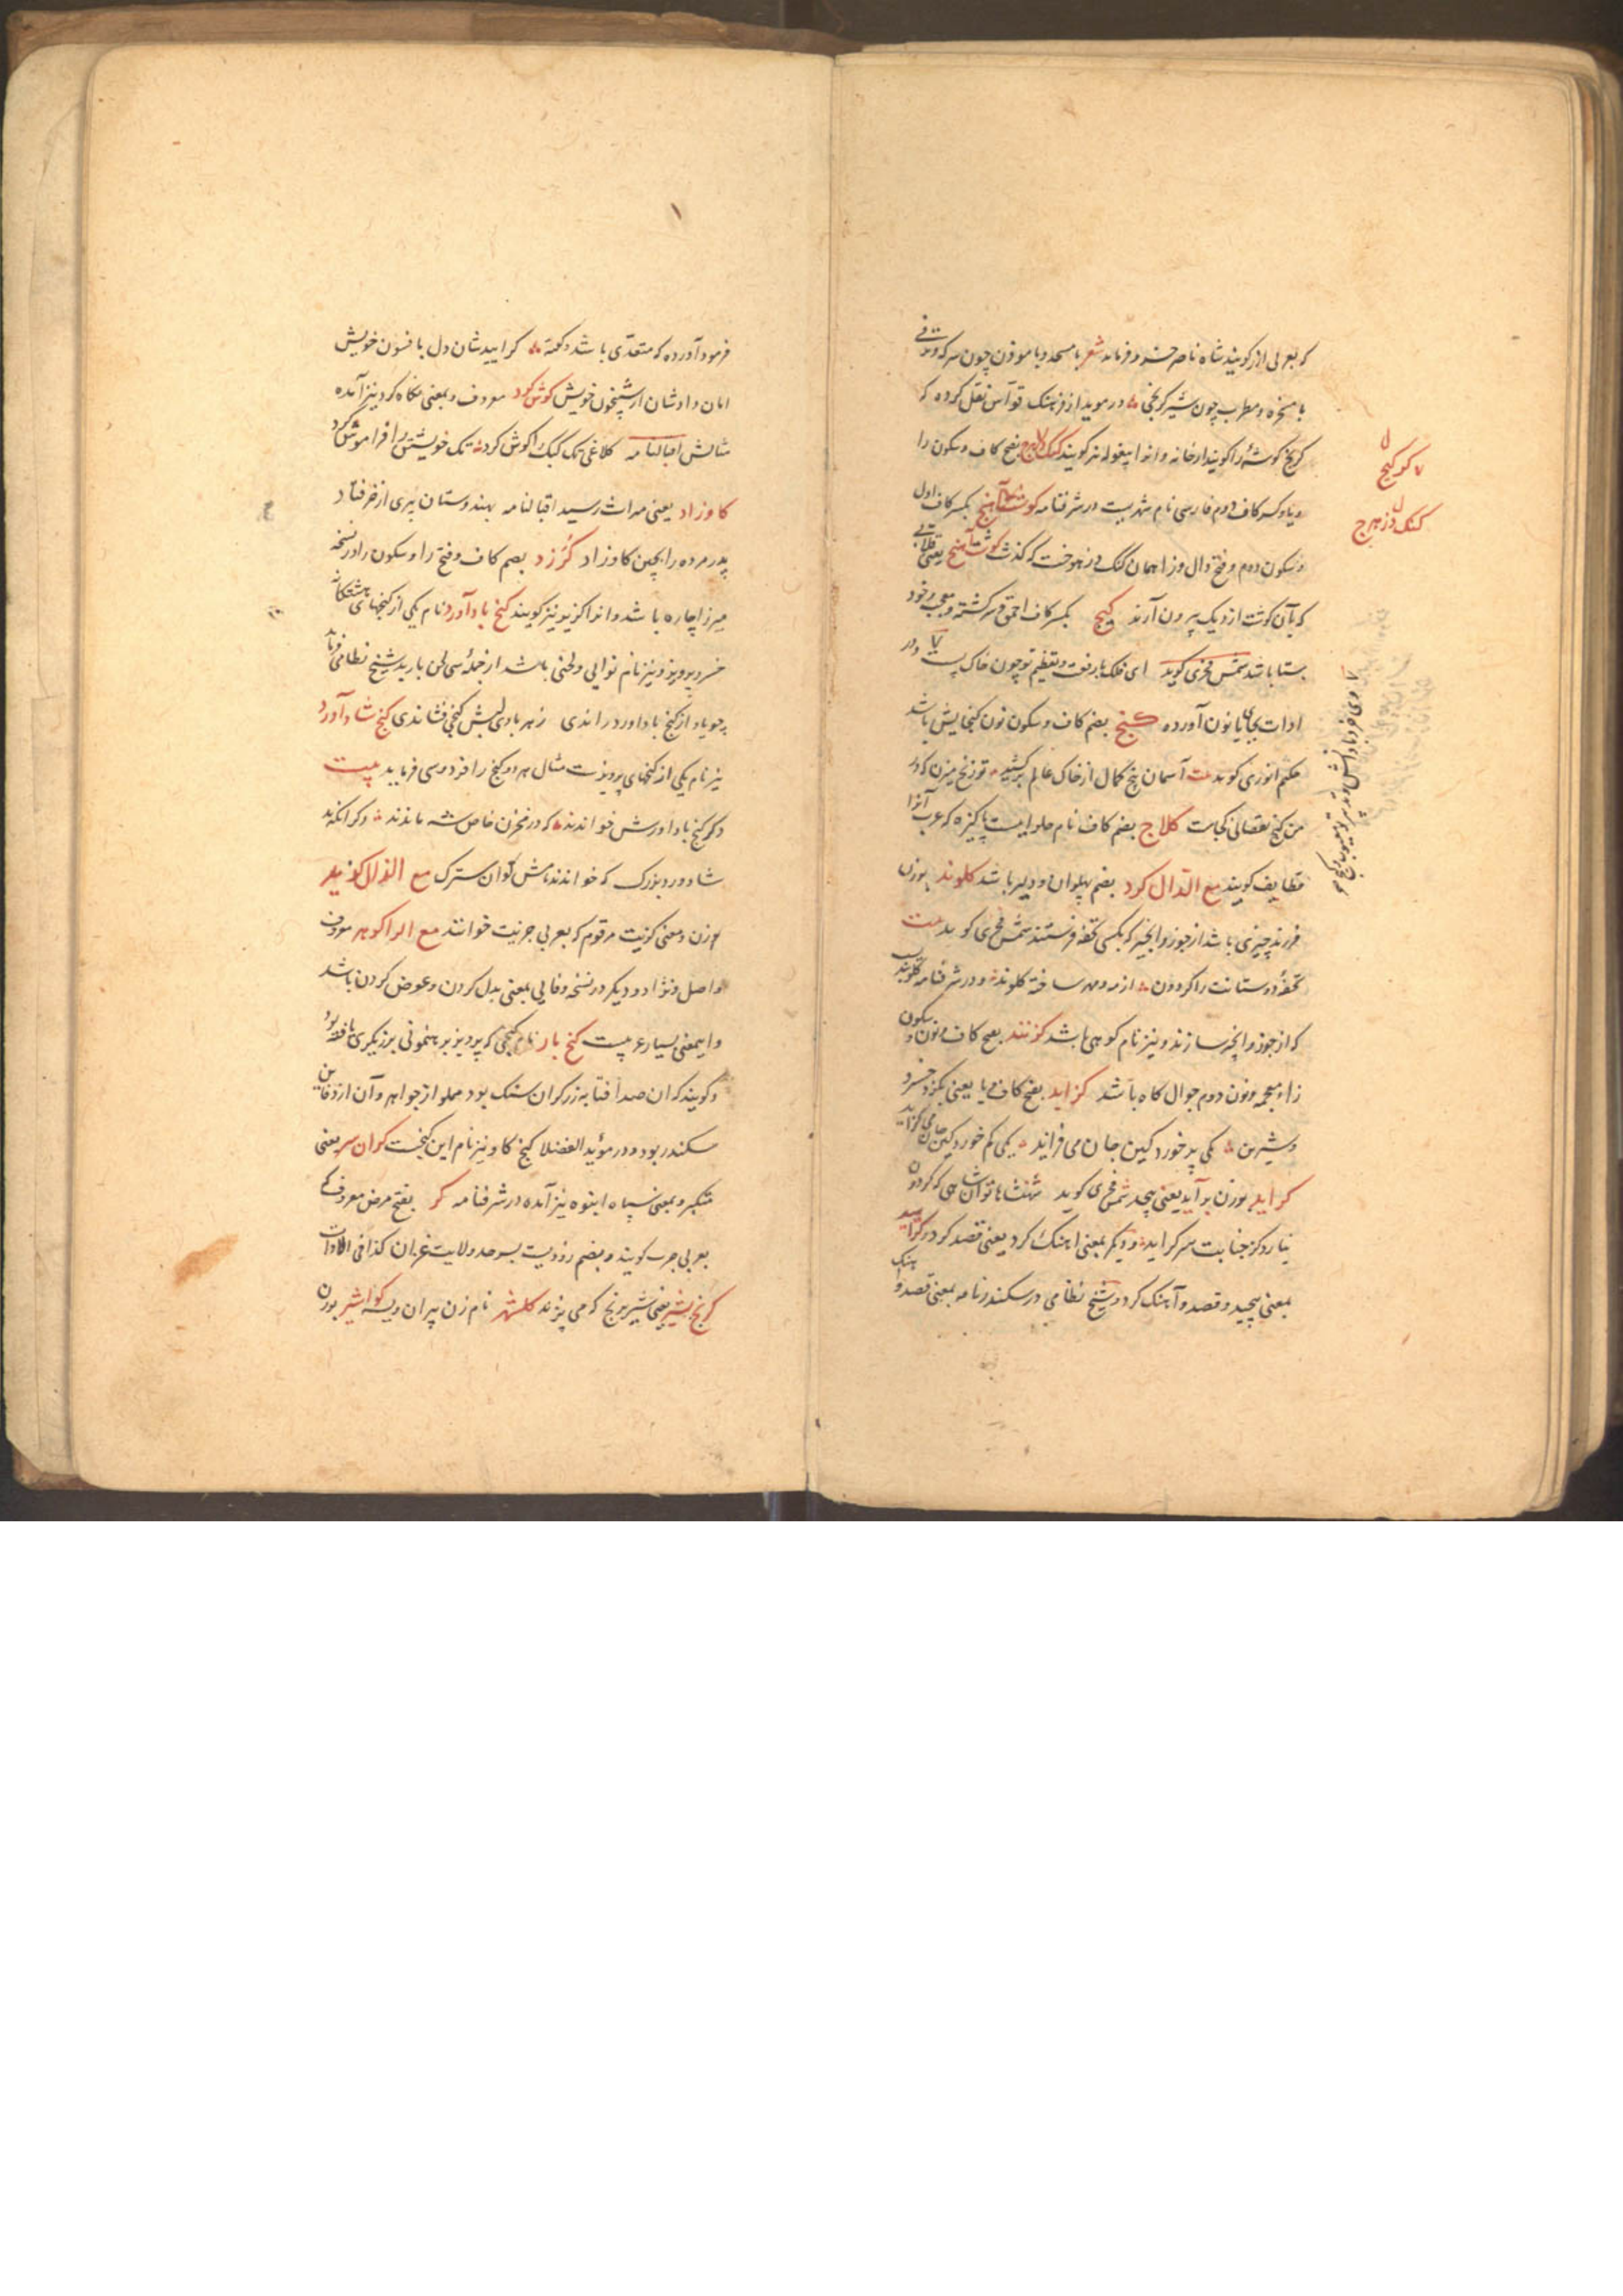 که بعربی ارز گویند شاه ناصر خسرو فرماید شعر با مسجد و با موذن چون سرکه و
با مسخره و مطرب چون شیر کرنجی در موید از فرهنک قواس نقل کرده که
کریج کوشهٔ را کویند از خانه و انرا پیغوله نیز کویند بفتح کاف و سکون را
و کسر کاف دوم فارسی نام شهریست در شرفنامه بکسر کاف اول
و سکون دوم و فتح دال و زا همان کنک دز هوخت که کذشت کوشت آهنج یعنی قلابی
که بآن کوشت از دیک بیرون آرند کیج بکسر کاف احمق و سرکشته و معجب و خود
ستا باشد شمس فخری کوید ای فلک با رفعت و تعظیم تو چون خاک پست
ادات بجای یا نون آورده کنج بضم کاف و سکون نون کنجایش باشد
حکیم انوری کوید بیت آسمان پنج کمال از خاک عالم برکشید تو زنخ میزن که در
من کنج نقصانی کجاست کلاج بضم کاف نام حلوایست پاکیزه که عرب آنرا
قطایف کویند مع الدال کرد بضم پهلوان و دلیر باشد کلوند بوزن
فرزند چیزی باشد از جوز و انجیر که بکسی تحفه فرستند شمس فخری کوید بیت
تحفهٔ دوستانت را کردون از مه و مهر ساخته کلوند و در شرفنامه کلوبند
که از جوز و انجیر سازند و نیز نام کوهی باشد کزنند بفتح کاف و نون و سکون
زاء معجمه و نون دوم جوال کاه باشد کزاید بفتح کاف و یا یعنی بکزد خسرو
و شیرین یکی پر خورد کین جان می فزاید یکی کم خورد کین جان می کزاید
کراید بوزن برآید یعنی پیچد شمس فخری کوید شهنشاها توان شاهی که کردون
نیارد کز جنابت سر کراید و دیکر بمعنی اهنک کرد یعنی قصد کرد و کرایید
بمعنی پیچید و قصد و آهنک کرد و شیخ نظامی در سکندرنامه بمعنی قصد و اهنک
کو کنج
کنک دز هرج
فرمود آورده که متعدی باشد کراییدشان دل بافسون خویش
امان دادشان از شبیخون خویش کوش کرد معروف و بمعنی نکاه کرد نیز آمده
مثالش اقبالنامه کلاغی تک کبک را کوش کرد تک خویشتن را فراموش کرد
کاو زاد یعنی میراث رسید اقبالنامه بهندوستان پیری از خر فتاد
پدر مرده را بچین کاو زاد کُرزد بضم کاف و فتح را و سکون را در نسخهٔ
میرزا چاره باشد و انرا کزیر نیز کویند کنج بادآورد نام یکی از کنجهای هشتکانهٔ
خسرو پرویز و نیز نام نوایی و لحنی باشد از جملهٔ سی لحن باربد شیخ نظامی فرماید
چو باد از کنج باداورد راندی ز هر بادی لبش کنجی فشاندی کنج شادآورد
نیز نام یکی از کنجهای پرویزست مثال هر دو کنج را فردوسی فرماید بیت
دکر کنج باداورش خواندند که در مخزن خاص شه ماندند دکر انکه بد
شادورد بزرک که خوانند نامش کوان سترک مع الذال کوزید
وزن و معنی کزیت مرقوم که بعربی جزیت خوانند مع الرا کوهر معروف
و اصل و نژاد و دیکر در نسخهٔ وفایی بمعنی بدل کردن و عوض کردن باشد
و ایمعنی بسیار غریبست کنج بار نام کنجی که پرویز برهنمونی برزیکری یافته بود
و کویند که ان صد آفتابه زر کران سنک بود مملو از جواهر و آن از دفاین
سکندر بود و در مؤید الفضلا کنج کاو نیز نام این کنجست کران سر یعنی
متکبر و بمعنی سپاه انبوه نیز آمده در شرفنامه کر بفتح مرض معروف که
بعربی جرب کویند و بضم رودیست بسرحد ولایت کذا فی الادات
کرنج بشیر یعنی شیربرنج که می پزند کلشهر نام زن پیران ویسه کواشیر بوزن